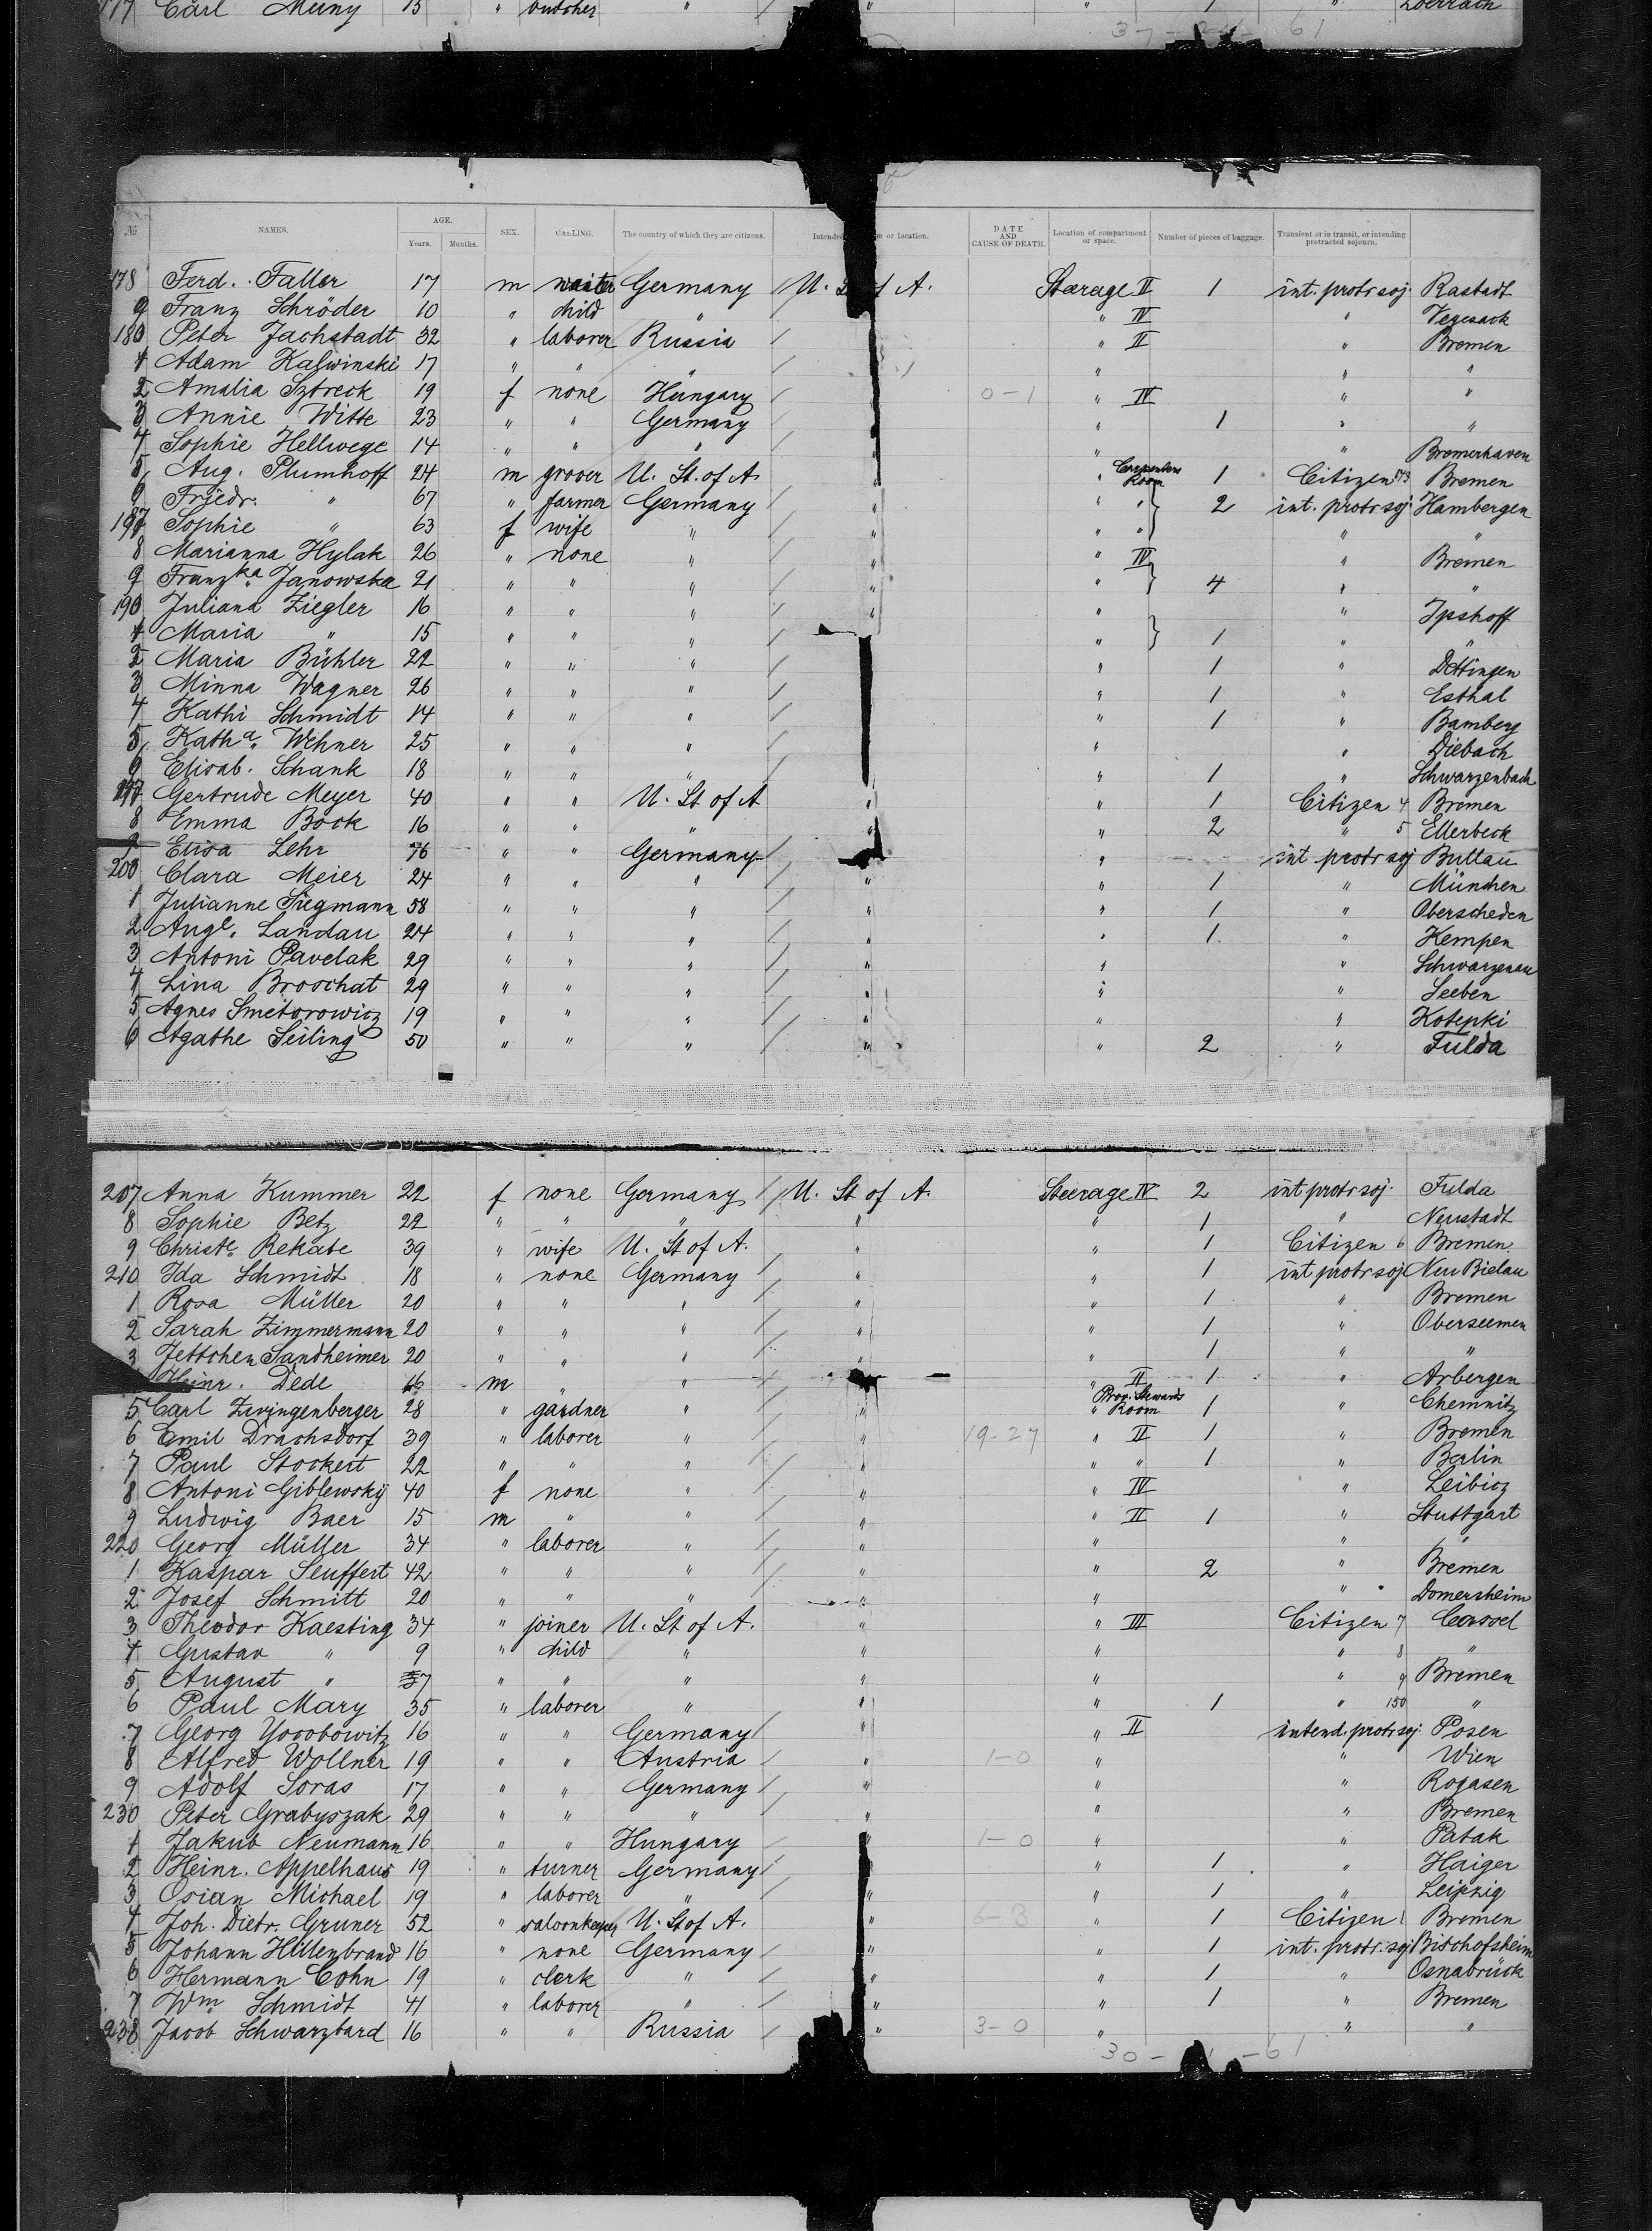 177 Carl Meiny 15 " butcher " / " " 1 " Loerrach
37 - 61
№ NAMES. AGE. Years. Months. SEX. CALLING. The country of which they are citizens. Intended or location. DATE AND CAUSE OF DEATH. Location of compartment or space. Number of pieces of baggage. Transient or in transit, or intending protracted sojourn.
178 Ferd. Faller 17 m waiter Germany / U. S of A. Steerage II 1 int. protr soj. Rastadt
9 Franz Schröder 10 " child " " IV " Vegesack
180 Peter Jachstadt 32 " laborer Russia / " II " Bremen
1 Adam Kalwinski 17 " " " / " " "
2 Amalia Sztreck 19 f none Hungary / 0-1 " IV " "
3 Annie Witte 23 " " Germany / " 1 " "
4 Sophie Hellwege 14 " " " / " " Bremerhaven
5 Aug. Plumhoff 24 m grocer U. St. of A. " Carpenters Room 1 Citizen 543 Bremen
6 Friedr. " 67 " farmer Germany / " " } 2 int. protr soj Hambergen
187 Sophie " 63 f wife " / " " " " "
8 Marianna Hylak 26 " none " / " " IV " Bremen
9 Franzka Janowska 21 " " " / " " } 4 " "
190 Juliana Ziegler 16 " " " / " " " Ipshoff
1 Maria " 15 " " " / " } 1 " "
2 Maria Bühler 22 " " " / " 1 " Dettingen
3 Minna Wagner 26 " " " / " 1 " Esthal
4 Kathi Schmidt 14 " " " / " 1 " Bamberg
5 Katha. Wehner 25 " " " / " " Diebach
6 Elisab. Schank 18 " " " / " 1 " Schwarzenbach
197 Gertrude Meyer 40 " " U. St of A " " 1 Citizen 4 Bremen
8 Emma Bock 16 " " " " " 2 " 5 Ellerbeck
9 Elisa Lehr 76 " " Germany / " int protr soj Bullau
200 Clara Meier 24 " " " / " " 1 " München
1 Julianne Siegmann 58 " " " / " " 1 " Oberscheden
2 Auge. Landau 24 " " " / " " 1 " Kempen
3 Antoni Pavelak 29 " " " / " " " Schwarzenau
4 Lina Broschat 29 " " " / " " " Seeben
5 Agnes Smetorowicz 19 " " " / " " " Kotepki
6 Agathe Seiling 50 " " " / " " 2 " Fulda
207 Anna Kummer 22 f none Germany / U. St of A. Steerage IV 2 int protr soj. Fulda
8 Sophie Betz 22 " " " / " " 1 " Neustadt
9 Christe. Rekate 39 " wife U. St of A. " " 1 Citizen 6 Bremen
210 Ida Schmidt 18 " none Germany / " " 1 int protr soj Neu Bielau
1 Rosa Müller 20 " " " / " " 1 " Bremen
2 Sarah Zimmermann 20 " " " / " " 1 " Oberseemen
3 Jettchen Sandheimer 20 " " " / " " 1 " "
Heinr. Dede 16 m " " " II 1 " Arbergen
5 Carl Zwingenberger 28 " gardner " / " " Prov. Stewards Room 1 " Chemnitz
6 Emil Drachsdorf 39 " laborer " / " 19-27 " II 1 " Bremen
7 Paul Stockert 22 " " " / " " " 1 " Berlin
8 Antoni Giblewskij 40 f none " / " " IV " Leibicz
9 Ludwig Baer 15 m " " / " " II 1 " Stuttgart
220 Georg Müller 34 " laborer " / " " " "
1 Kaspar Seuffert 42 " " " / " " 2 " Bremen
2 Josef Schmitt 20 " " " / " " " Domersheim
3 Theodor Kaesting 34 " joiner U. St of A. " " III Citizen 7 Cassel
4 Gustav " 9 " child " " " " 8 "
5 August " 7 " " " " " " 9 Bremen
6 Paul Mary 35 " laborer " " " 1 " 150 "
7 Georg Yocobowitz 16 " " Germany / " " II intend. protr soj. Posen
8 Alfred Wollner 19 " " Austria / " 1-0 " " Wien
9 Adolf Soras 17 " " Germany / " " " Rogasen
230 Peter Grabyszak 29 " " " / " " " Bremen
1 Jakub Neumann 16 " " Hungary / " 1-0 " " Patak
2 Heinr. Appelhaus 19 " turner Germany / " 1 " Haiger
3 Osian Michael 19 " laborer " / " " 1 " Leipzig
4 Joh. Dietr. Gruner 52 " saloonkeeper U. St of A. " 6-3 " 1 Citizen 1 Bremen
5 Johann Hillenbrand 16 " none Germany / " " 1 int. protr. soj Bischofsheim
6 Hermann Cohn 19 " clerk " / " " 1 " Osnabrück
7 Wm Schmidt 41 " laborer " / " " 1 " Bremen
238 Jacob Schwarzbard 16 " " Russia / " 3-0 " " "
30 - 1 - 61